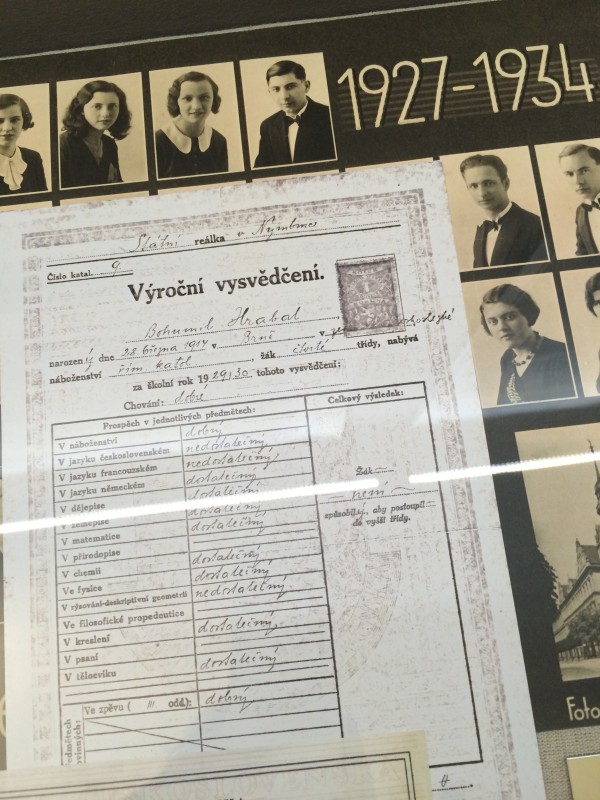 1927-1934
Státní reálka v Nymburce
Číslo katal. 9
Výroční vysvědčení.
Bohumil Hrabal
narozený dne 28 března 1914 v Brně v
náboženství řím. katol., žák čtvrté třídy, nabývá
za školní rok 1929/30 tohoto vysvědčení:
Chování: dobré
Prospěch v jednotlivých předmětech:
Celkový výsledek:
V náboženství dobrý
V jazyku československém nedostatečný
V jazyku francouzském nedostatečný
V jazyku německém dostatečný
V dějepise dostatečný
V zeměpise dostatečný
V matematice
V přírodopise
V chemii dostatečný
Ve fysice dostatečný
V rýsování-deskriptivní geometrii nedostatečný
Ve filosofické propedeutice
V kreslení dostatečný
V psaní
V tělocviku dostatečný
Ve zpěvu ( III odd.): dobrý
Žák
není
způsobilý, aby postoupil
do vyšší třídy.
Foto